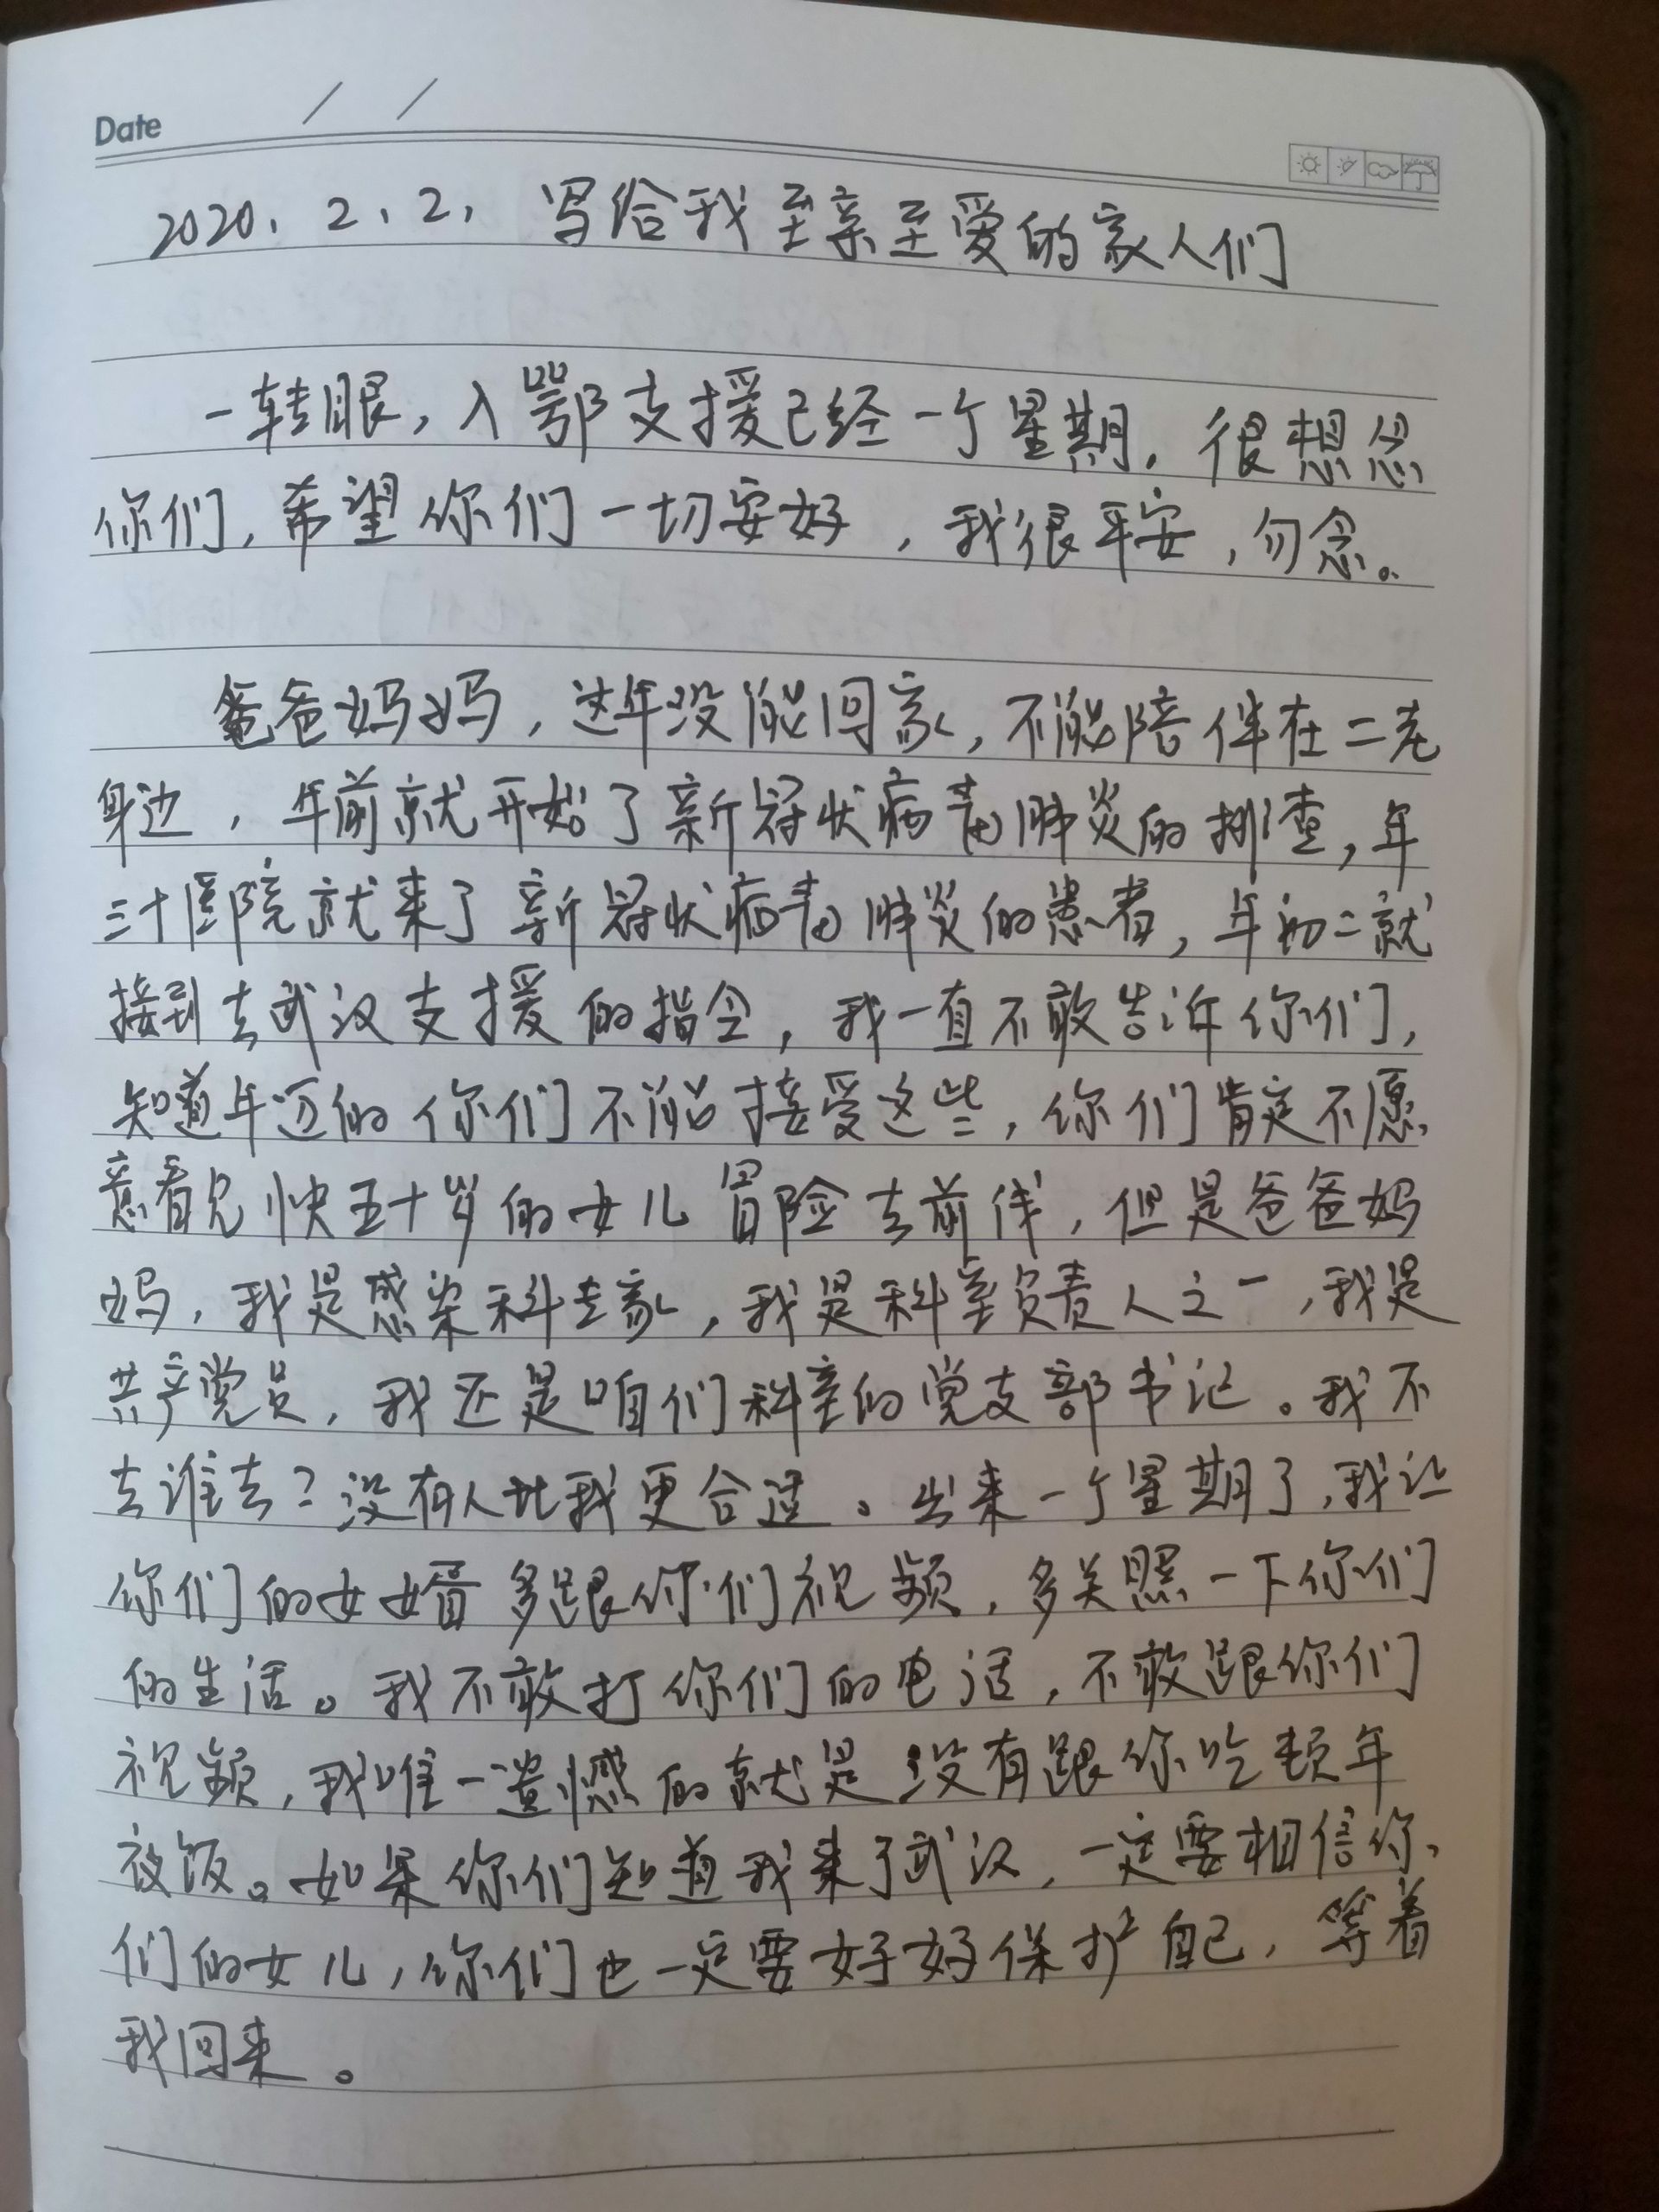 Date / /
2020、2、2、 写给我至亲至爱的家人们
一转眼，入鄂支援已经一个星期，很想念
你们，希望你们一切安好，我很平安，勿念。
爸爸妈妈，这年没能回家，不能陪伴在二老
身边，年前就开始了新冠状病毒肺炎的排查，年
三十医院就来了新冠状病毒肺炎的患者，年初二就
接到去武汉支援的指令，我一直不敢告诉你们，
知道年迈的你们不能接受这些，你们肯定不愿
意看见快五十岁的女儿冒险去前线，但是爸爸妈
妈，我是感染科专家，我是科室负责人之一，我是
共产党员，我还是咱们科室的党支部书记。我不
去谁去？没有人比我更合适。出来一个星期了，我让
你们的女婿多跟你们视频，多关照一下你们
的生活。我不敢打你们的电话，不敢跟你们
视频，我唯一遗憾的就是没有跟你吃顿年
夜饭。如果你们知道我来了武汉，一定要相信你
们的女儿，你们也一定要好好保护自己，等着
我回来。